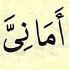 أَمَانِىَّ